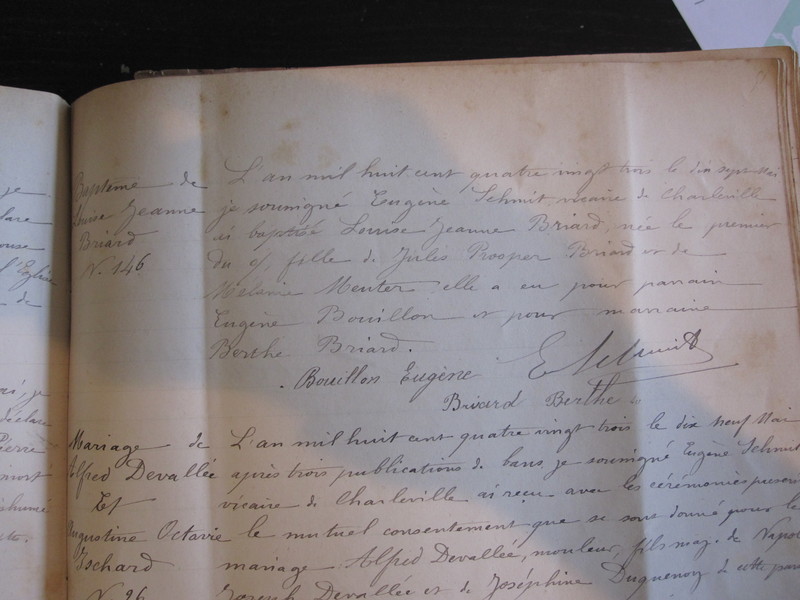 Baptême de
Louise Jeanne
Briard
N. 146
L'an mil huit cent quatre vingt trois le dix sept Mai
je soussigné Eugène Schmit, vicaire de Charleville
ai baptisé Louise Jeanne Briard, née le premier
du c/, fille de Jules Prosper Briard et de
Mélanie Menter elle a eu pour parrain
Eugène Bouillon et pour marraine
Berthe Briard.
E Schmit
Bouillon Eugène
Briard Berthe
Mariage de
Alfred Devallée
Et
Augustine Octavie
Ischard
N. 26
L'an mil huit cent quatre vingt trois le dix neuf Mai
après trois publications de bans, je soussigné Eugène Schmit
vicaire de Charleville ai reçu avec les cérémonies
le mutuel consentement que se sont donné pour le
mariage Alfred Devallée, mouleur, fils maj. de
Joseph Devallée et de Joséphine Duquenoy de cette